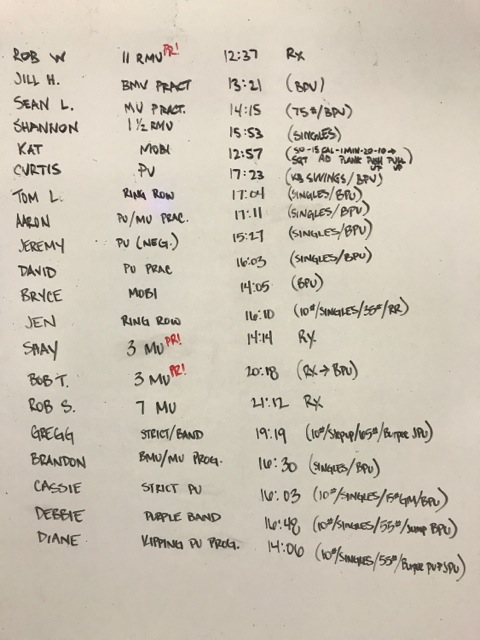 ROB W 11 RMU PR! 12:37 RX
JILL H. BMU PRACT 13:21 (BPU)
SEAN L. MU PRACT. 14:15 (75#/BPU)
SHANNON 1 1/2 RMU 15:53 (SINGLES)
KAT MOBI 12:57 (50-15 CAL-1MIN-20-10→ SQT AD PLANK PUSH UP PULL UP)
CURTIS PU 17:23 (KB SWINGS/BPU)
TOM L. RING ROW 17:04 (SINGLES/BPU)
AARON PU/MU PRAC. 17:11 (SINGLES/BPU)
JEREMY PU (NEG.) 15:27 (SINGLES/BPU)
DAVID PU PRAC 16:03 (SINGLES/BPU)
BRYCE MOBI 14:05 (BPU)
JEN RING ROW 16:10 (10#/SINGLES/35#/RR)
SHAY 3 MU PR! 14:14 RX
BOB T. 3 MU PR! 20:18 (RX→BPU)
ROB S. 7 MU 21:12 RX
GREGG STRICT/BAND 19:19 (10#/Stepup/65#/Burpee JPU)
BRANDON BMU/MU PROG. 16:30 (SINGLES/BPU)
CASSIE STRICT PU 16:03 (10#/SINGLES/15#GM/BPU)
DEBBIE PURPLE BAND 16:48 (10#/SINGLES/55#/Jump BPU)
DIANE KIPPING PU PROG. 14:06 (10#/SINGLES/55#/Burpee PU→JPU)